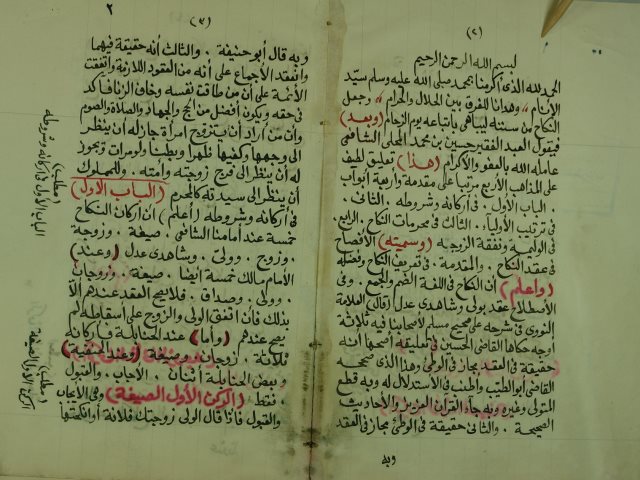 (٢)
بسم الله الرحمن الرحيم
الحمد لله الذى اكرمنا بمحمد صلى الله عليه وسلم سيّد
الأنام وهدانا للفرق بين الحلال والحرام وجعل
النكاح من سنته ليباهى باتباعه يوم الزحام (وبعد)
فيقول العبد الفقير حسين بن محمد المحلى الشافعى
عامله الله بالعفو والأكرام (هذا) تعليق لطيف
على المذاهب الأربع مرتبا على مقدمة واربعة أبواب
الباب الأول . فى أركانه وشروطه . الثانى .
فى ترتيب الأولياء . الثالث فى محرمات النكاح . الرابع .
فى الوليمة ونفقة الزوجة (وسميته) الأفصاح
فى عقد النكاح . والمقدمة . فى تعريف النكاح وفضله
(واعلم) أن النكاح فى اللغة الضم والجمع . وفى
الأصطلاح عقد بولى وشاهدى عدل (قال) العلامة
النووى فى شرحه على صحيح مسلم لأصحابنا فيه ثلاثة
اوجه حكاها القاضى الحسين فى تعليقه أصحها أنه
حقيقة فى العقد مجاز فى الوطئ وهذا الذى صححه
القاضى أبو الطيب واطنب فى الاستدلال له وبه قطع
المتولى وغيره وبه جاء القرآن العزيز والأحاديث
الصحيحة . والثانى حقيقة فى الوطئ مجاز فى العقد
وبه
(٣)
٢
وبه قال أبو حنيفة . والثالث أنه حقيقة فيهما
وانعقد الأجماع على أنه من العقود اللازمة واتفقت
الأئمة على أن من طاقت نفسه وخاف الزنا فأكد
فى حقه ويكون أفضل من الحج والجهاد والصلاة والصوم
وأن من اراد أن يتزوج امرأة جاز له أن ينظر
الى وجهها وكفيها ظهرا وبطنا ولو مرات ويجوز
له أن ينظر الى فرج زوجته وأمته . وللمملوك
أن ينظر الى سيدته كالمحرم (الباب الأول)
فى أركانه وشروطه (أعلم) أن اركان النكاح
خمسة عند أمامنا الشافعى . صيغة . وزوجة
وزوج . وولى . وشاهدى عدل (وعند)
الأمام مالك خمسة أيضا . صيغة . وزوجان
وولى . وصداق . فلا يصح العقد عندهم ألا
بذلك فأن اتفق الولى والزوج على أسقاطه لم
يصح عندهم (وأما) عند الحنابلة فأركانه
ثلاثة . زوجان . وصيغة (وعند الحنفية)
وبعض الحنابلة أثنان . الأيجاب . والقبول
فقط . (الركن الأول الصيغة) وهى الأيجاب
والقبول فأذا قال الولى زوجتك فلانة أو انكحتها
(مطلب)
الباب الأول فى أركانه وشروطه
(مطلب)
الركن الأول الصيغة